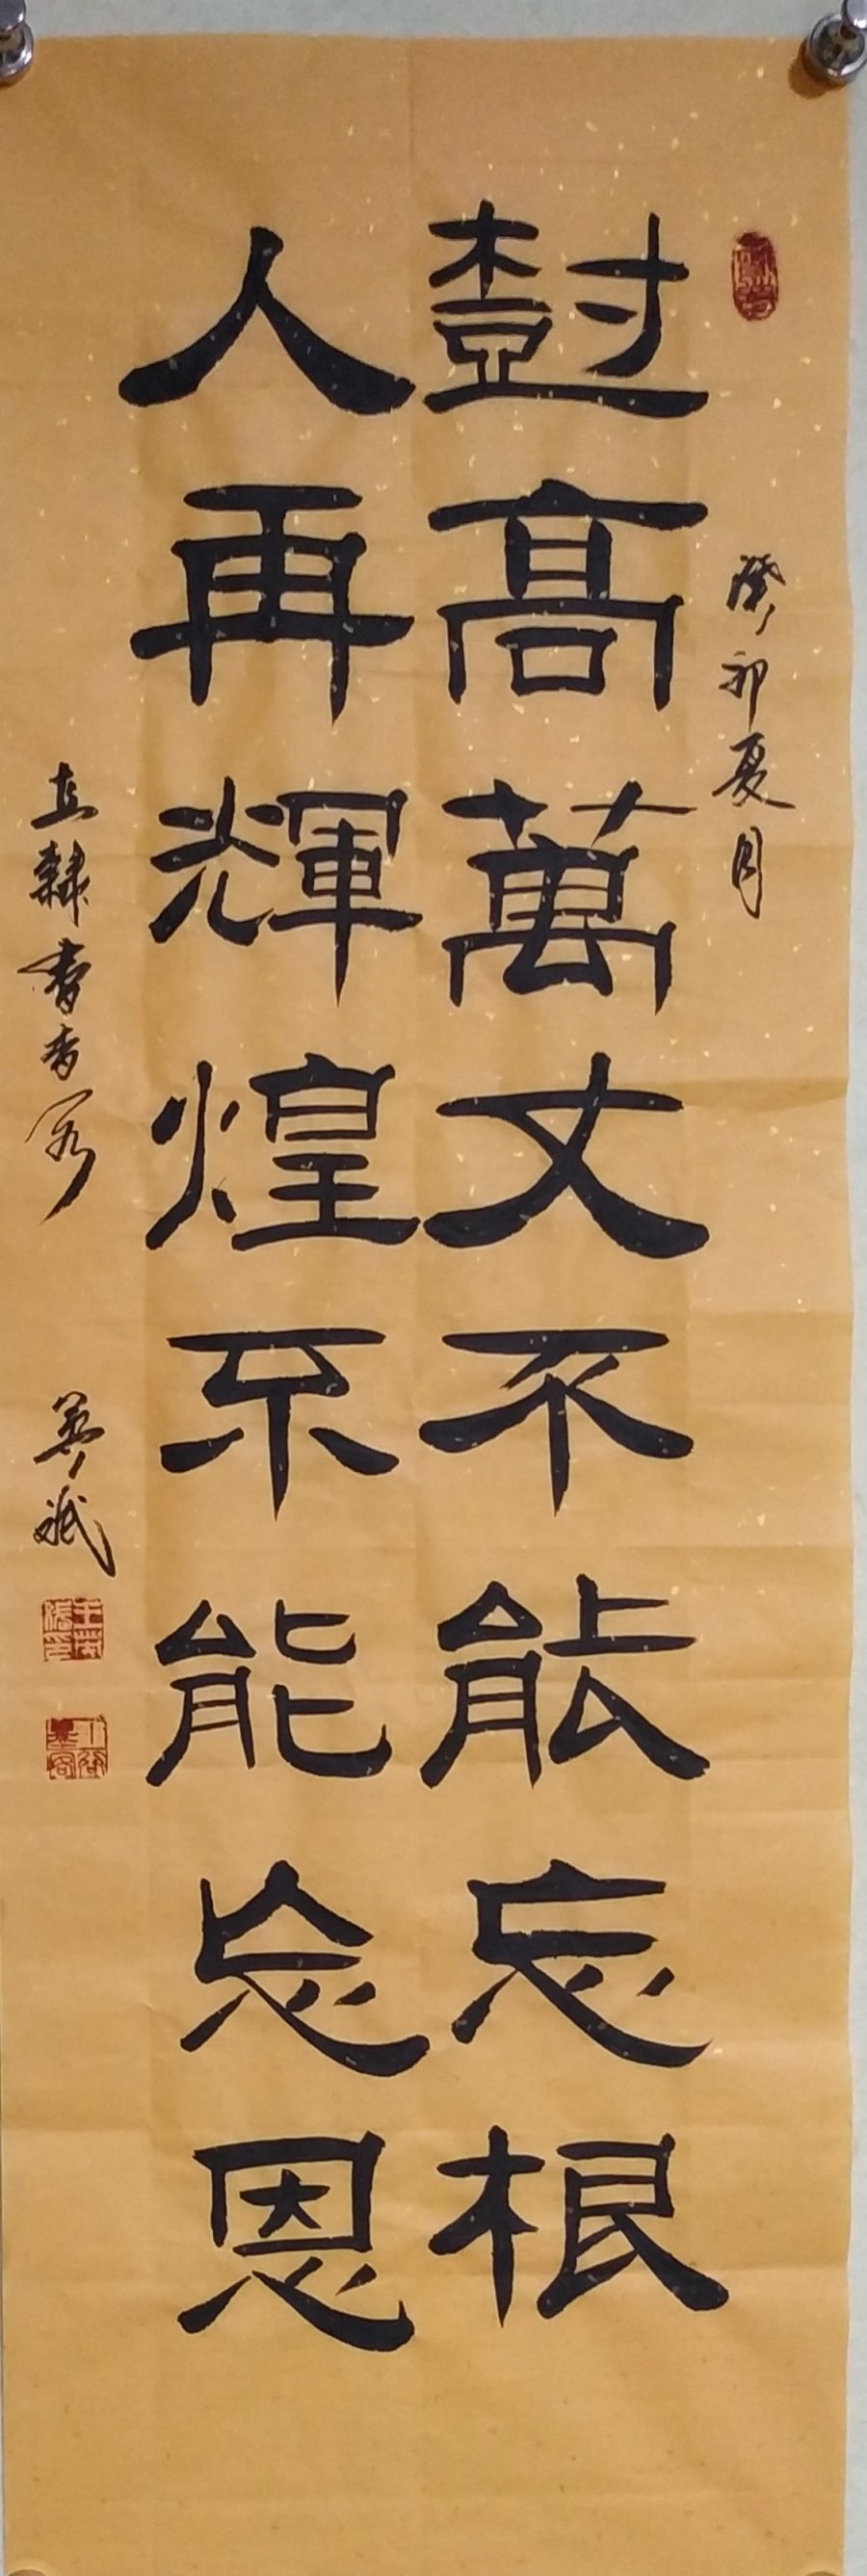 癸卯夏月
樹高萬丈不能忘根
人再輝煌不能忘恩
直隸書香客
英斌